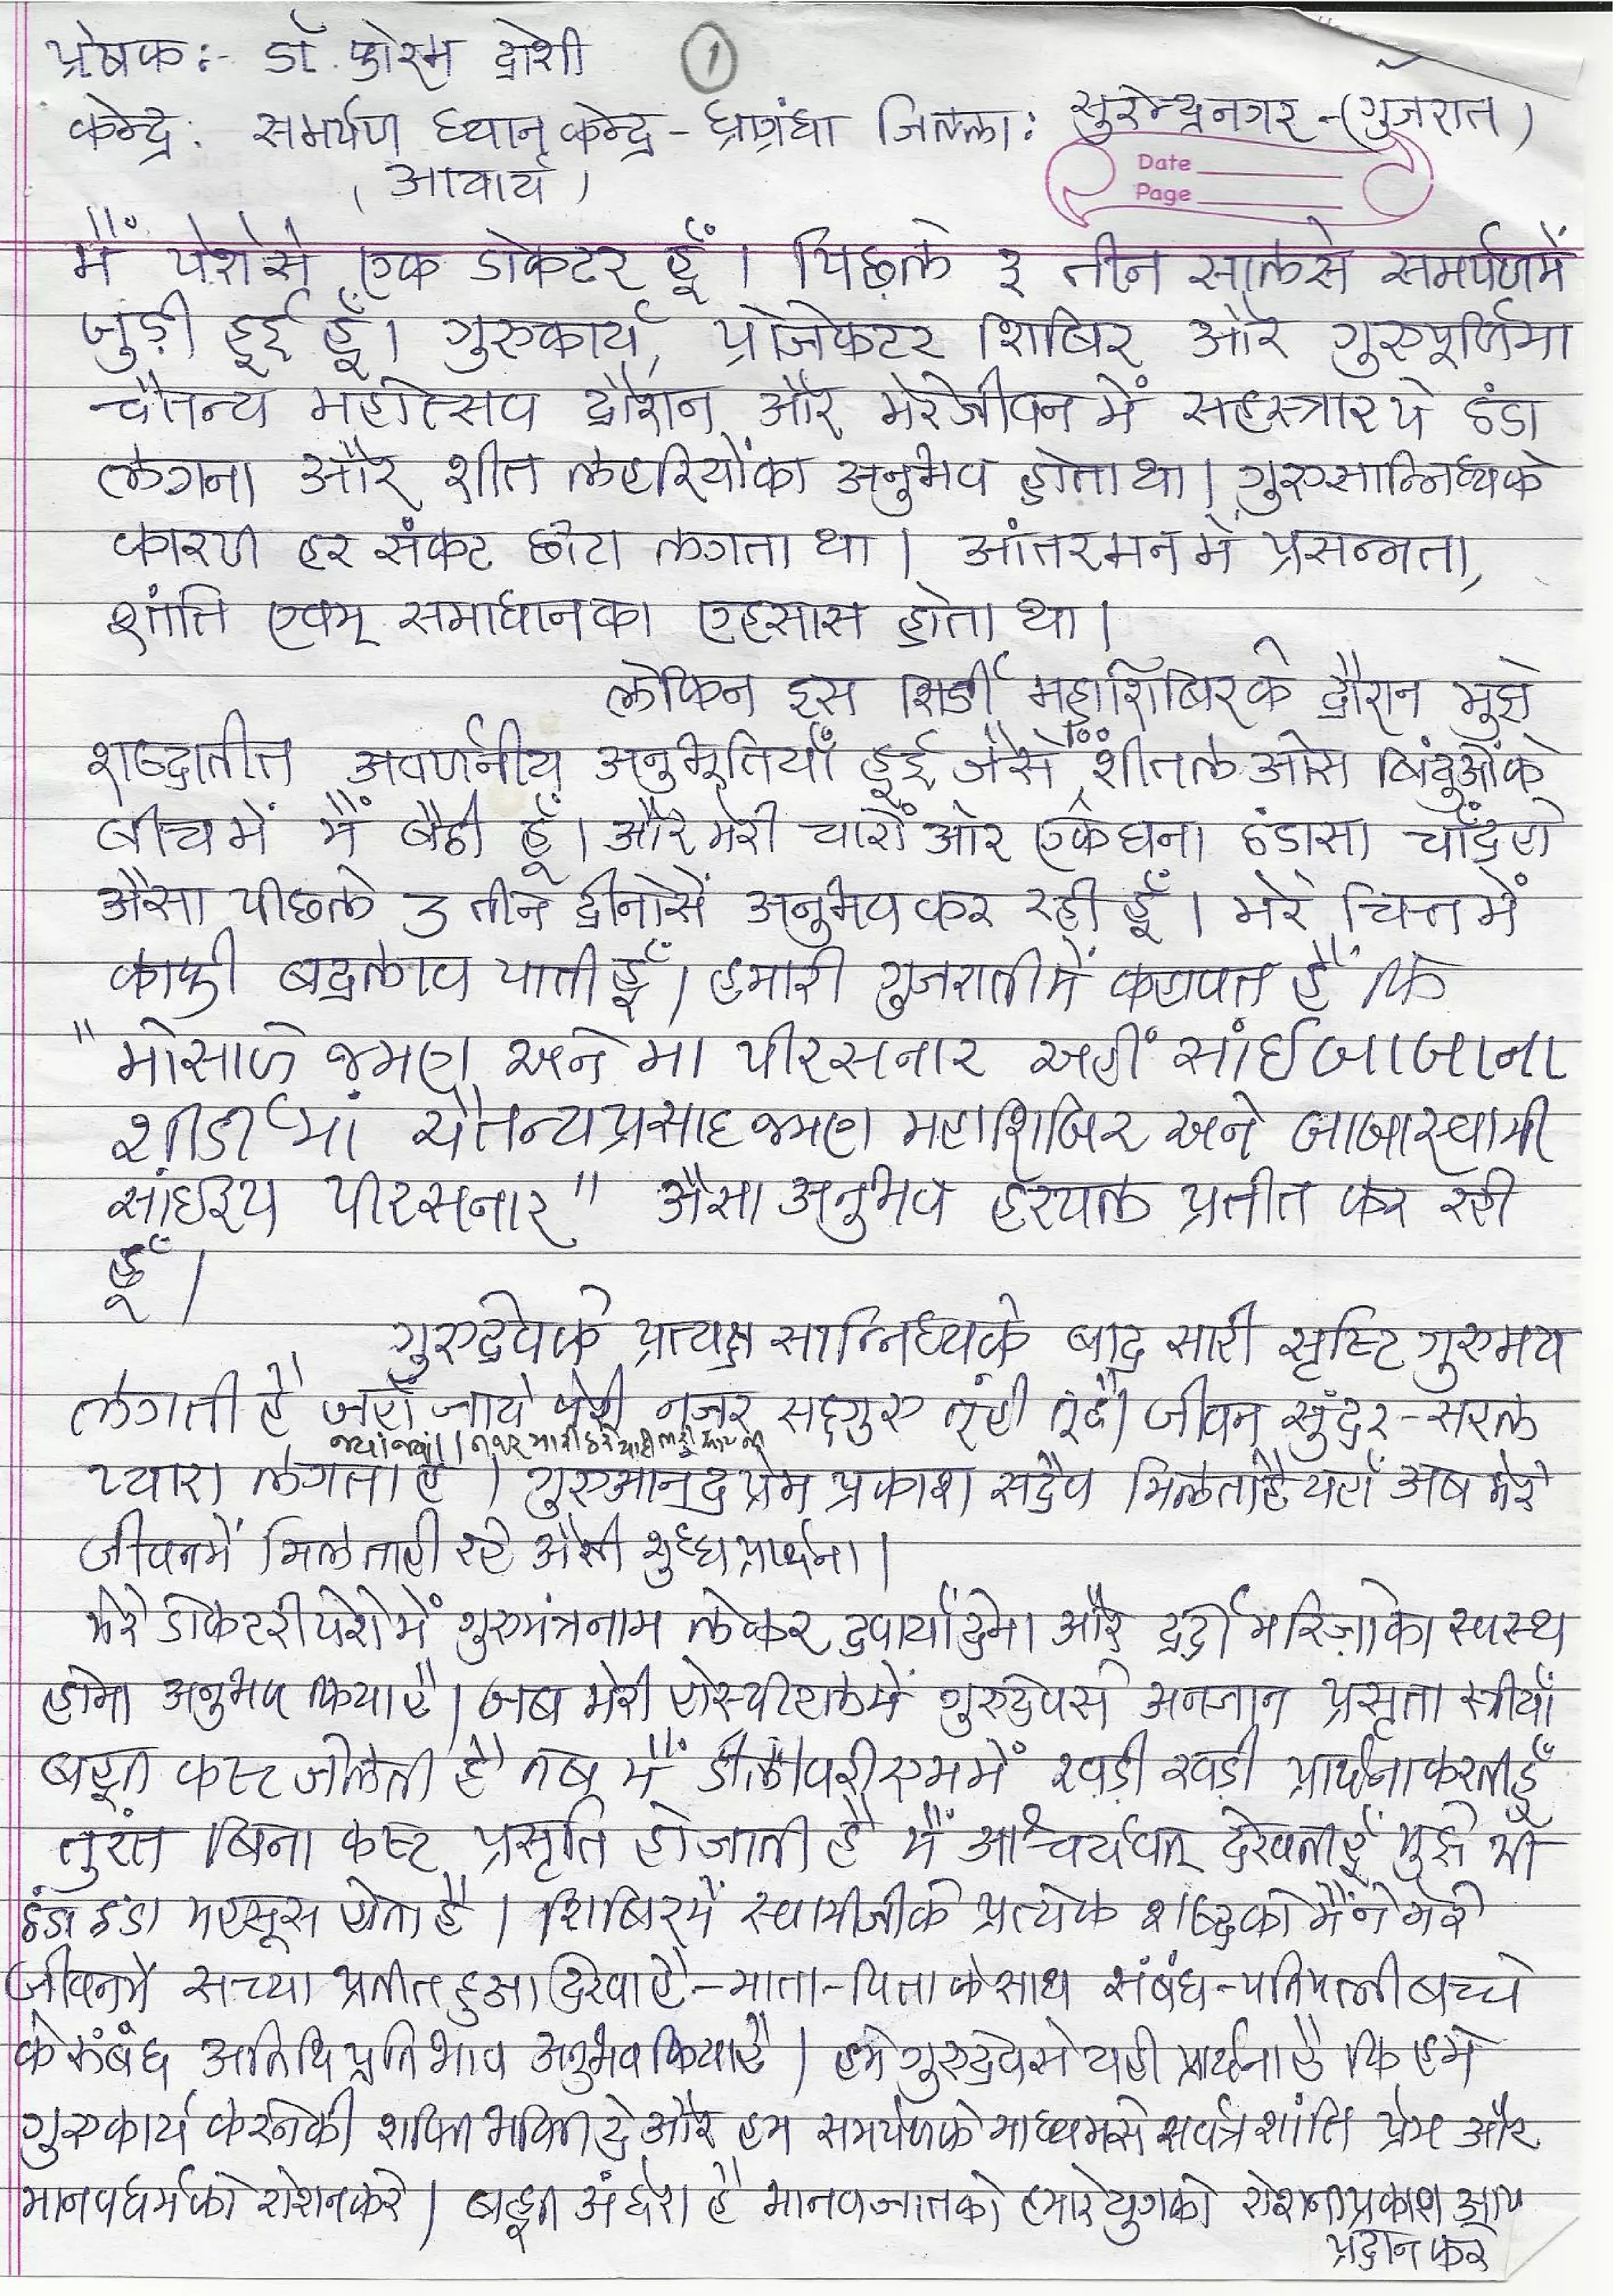 प्रेषक:- डॉ. फोरम दोशी ①
केन्द्र: समर्पण ध्यान केन्द्र - ध्रांगंध्रा जिल्ला: सुरेन्द्रनगर - (गुजरात)
(आचार्य)
Date
Page
मैं पेशेसे एक डोकटर हूँ। पिछले ३ तीन सालसे समर्पणमें
जुड़ी हुई हूँ। गुरुकार्य, प्रोजेकटर शिबिर और गुरुपूर्णिमा
चैतन्य महोत्सव दौरान और मेरेजीवन में सहस्त्रार पे ठंडा
लगना और शीत लहरियोंका अनुभव होता था। गुरुसान्निध्यके
कारण हर संकट छोटा लगता था। आंतरमन में प्रसन्नता,
शांति एवम् समाधानका एहसास होता था।
लेकिन इस शिर्डी महाशिबिरके दौरान मुझे
शब्दातीत अवर्णनीय अनुभूतियाँ हुई जैसे शीतल ओस बिंदुओंके
बीचमें मैं बैठी हूँ। और मेरी चारों ओर एक घना ठंडासा चाँद हो
औसा पीछले 3 तीन दीनोसें अनुभव कर रही हूँ। मेरे चित्त में
काफी बदलाव पाती हूँ। हमारी गुजरातीमें कहावत है कि
"મોસાળે જમણ અને મા પીરસનાર અહીં સાંઈબાબાના
શીર્ડીમાં ચૈતન્યપ્રસાદ જમણ મહાશિબિર અને બાબાસ્વામી
સાંઈરૂપ પીરસનાર" औसा अनुभव हरपल प्रतीत कर रही
हूँ।
गुरुदेवके प्रत्यक्ष सान्निध्यके बाद सारी सृष्टि गुरुमय
लगती है जहाँ जाये मेरी नजर सदगुरु तूंही तूंही जीवन सुंदर-सरल
प्यारा लगता है। गुरुआनंद प्रेम प्रकाश सदैव मिलता है यहाँ अब मेरे
जीवनमें मिलताही रहे औसी शुद्ध प्रार्थना।
मेरे डोकटरी पेशेमें गुरुमंत्रनाम लेकर दवायाँ देना और दर्दी मरिज़ोका स्वस्थ
होना अनुभव किया है। जब मेरी होस्पीटलमें गुरुदेवसे अनजान प्रसूता स्त्रीयाँ
बहूत कस्ट जेलती है तब मैं डीलीवरी रुममें खड़ी खड़ी प्रार्थना करती हूँ
तुरंत बिना कष्ट प्रसूति हो जाती है मैं आश्चर्यवत् देखती हूँ मुझे भी
ठंडा ठंडा महसूस होता है। शिबिरमें स्वामीजीके प्रत्येक शब्दको मैंने मेरे
जीवनमें सच्चा प्रतीत हुआ देखा है - माता-पिता के साथ संबंध - पतिपत्नी बच्चे
के संबंध अतिथि प्रति भाव अनुभव किया है। हमे गुरुदेव से यही प्रार्थना है कि हमे
गुरुकार्य करनेकी शक्ति भक्ति दे और हम समर्पणके माध्यमसे सर्वत्र शांति प्रेम और
मानवधर्मको रोशन करे। बहूत अंधेरा है मानवजातको हमारे युगको रोशनी प्रकाश आप
प्रदान करे